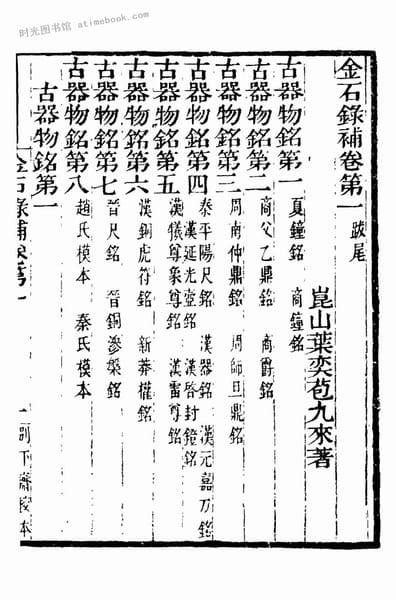 时光图书馆 atimebook.com
金石錄補卷第一 跋尾
崑山葉奕苞九來著
古器物銘第一 夏鐘銘 商鐘銘
古器物銘第二 商父乙鼎銘 商爵銘
古器物銘第三 周南仲鼎銘 周師旦鼎銘
古器物銘第四 泰平陽尺銘 漢器銘 漢元嘉刀銘
漢延光壺銘 漢啓封鐙銘
古器物銘第五 漢犧尊象尊銘 漢雷尊銘
古器物銘第六 漢銅虎符銘 新莽權銘
古器物銘第七 晉尺銘 晉銅滲槃銘
古器物銘第八 趙氏模本 秦氏模本
古器物銘第一
金石錄補卷第一
一 別下齋校本